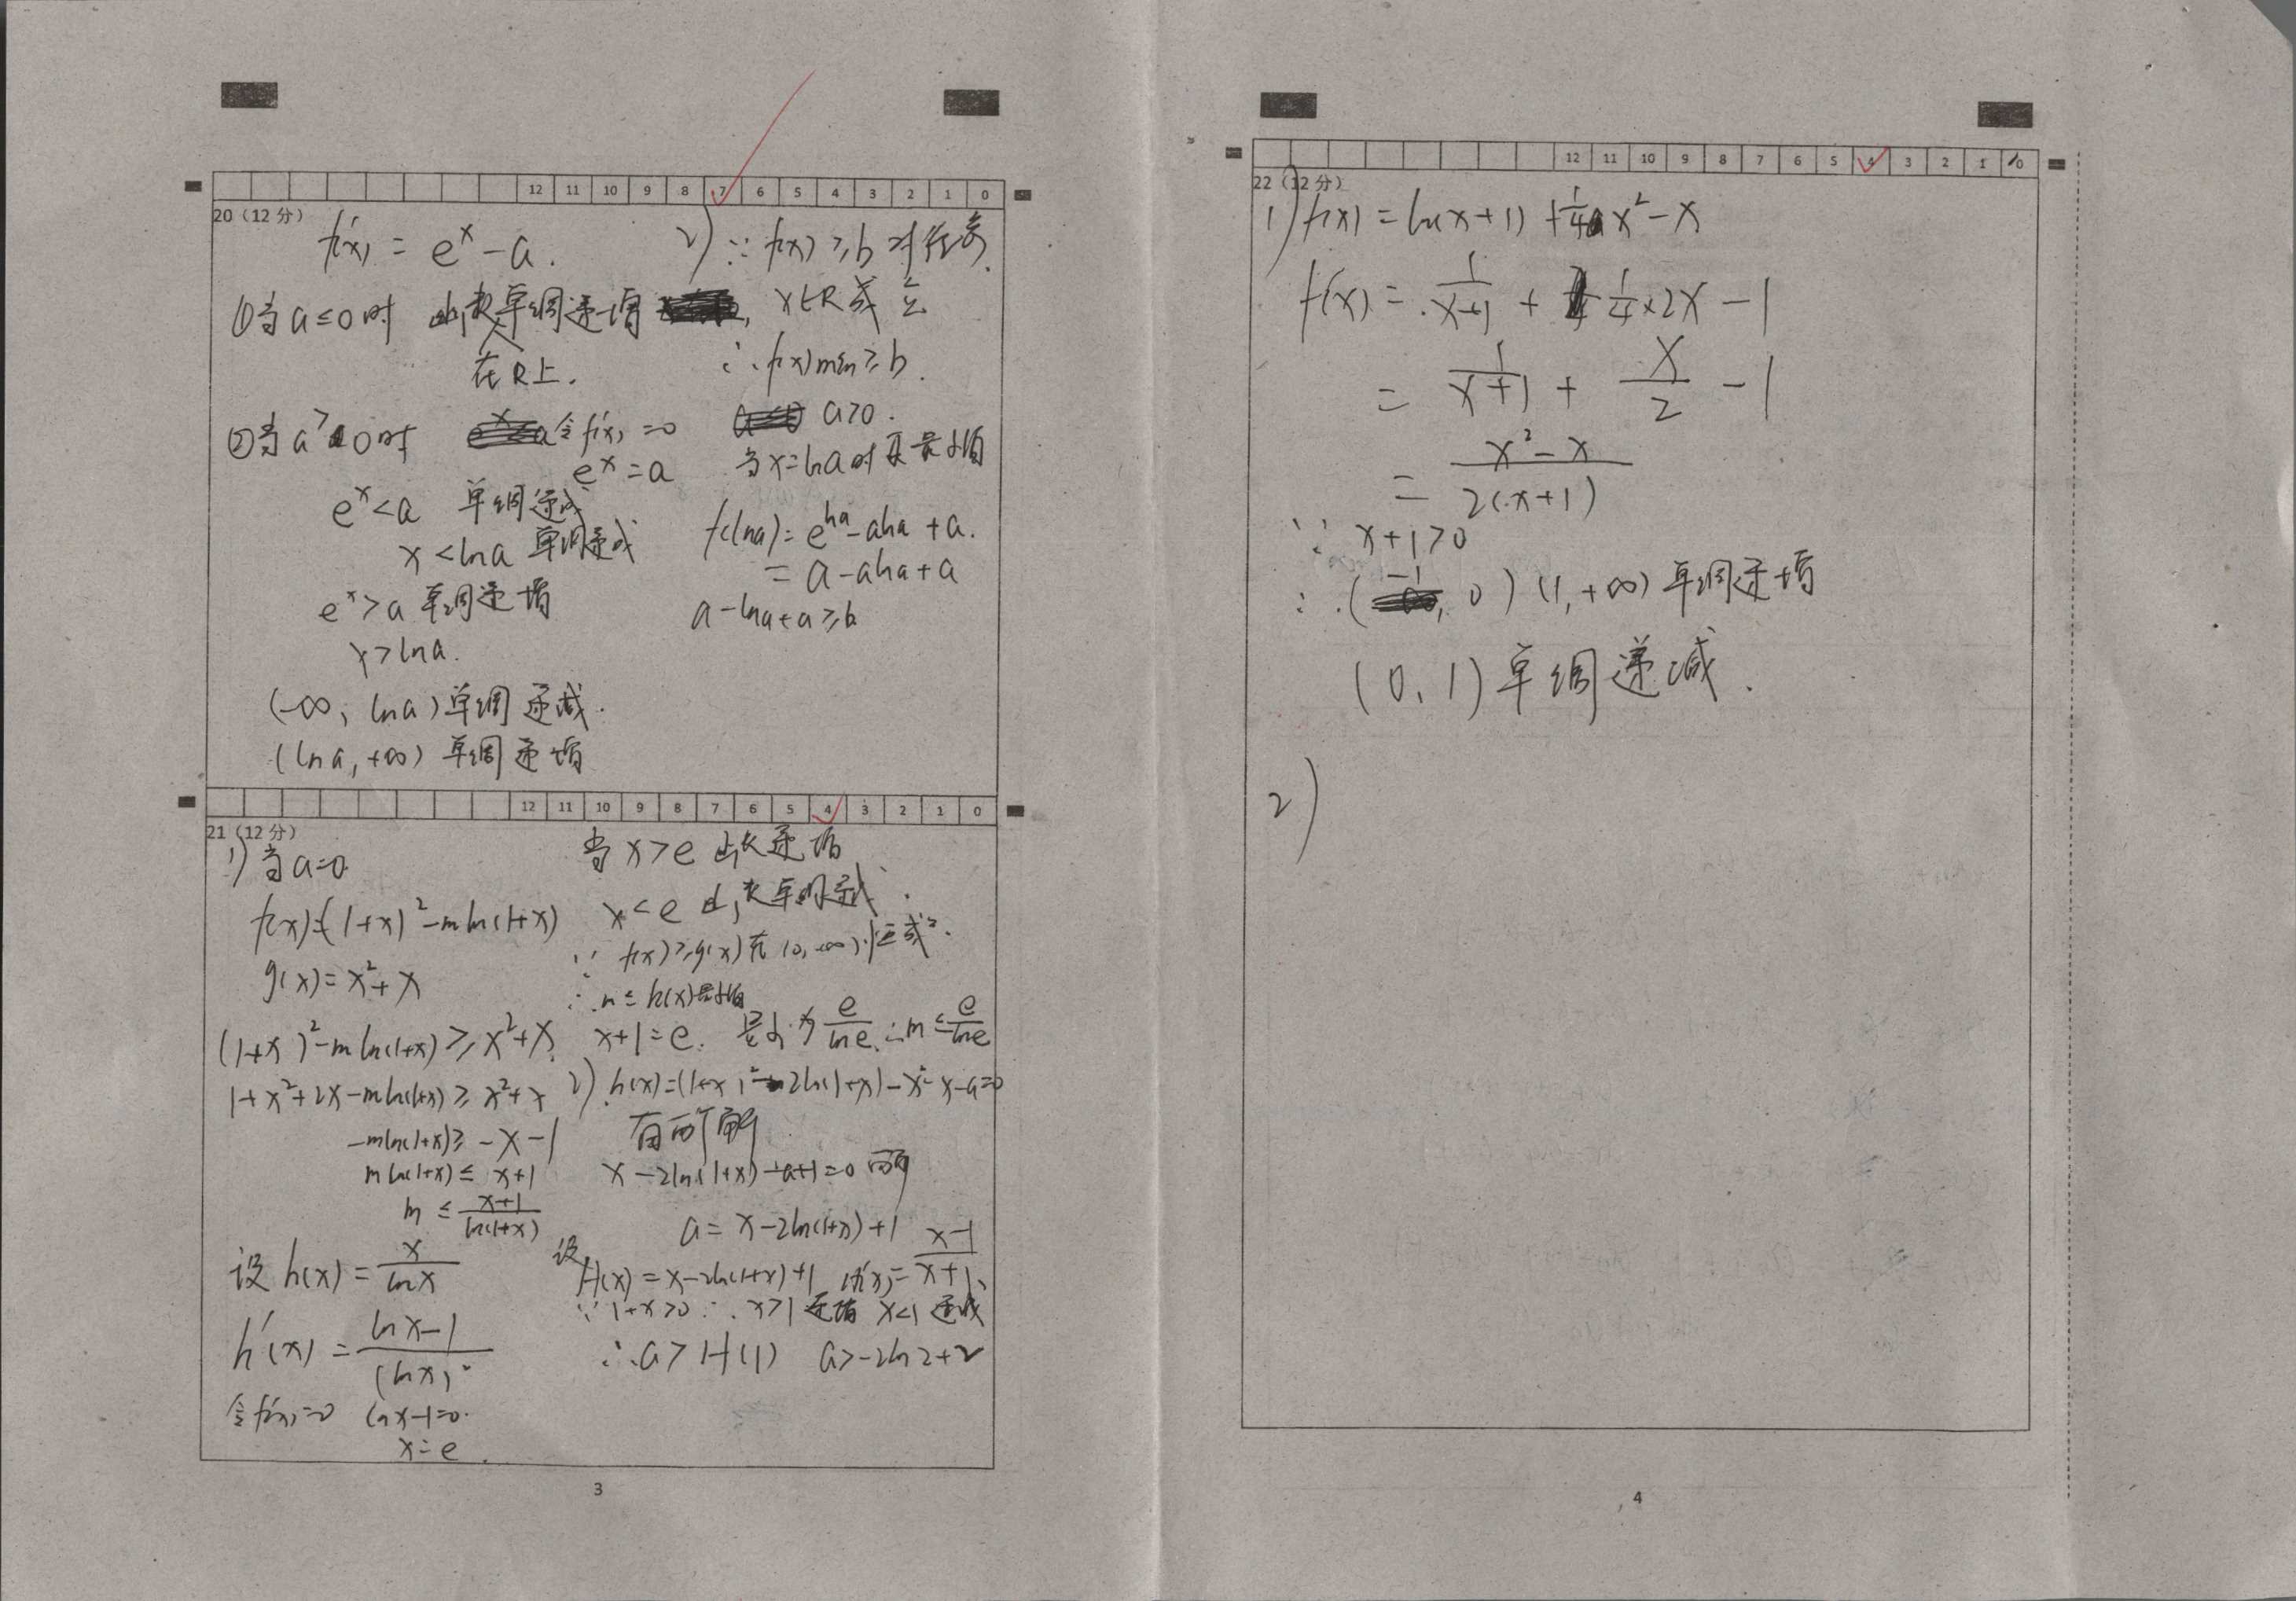 12 11 10 9 8 7 6 5 4 3 2 1 0
20（12分）
f'(x) = e^x - a.
①当 a≤0时 此函数单调递增
在R上.
②当 a>0时 令f'(x)=0
e^x = a
e^x < a 单调递减
x < ln a 单调递减
e^x > a 单调递增
x > ln a.
(-∞, ln a) 单调递减.
(ln a, +∞) 单调递增
2) ∵ f(x) ≥ b 对任意
x∈R 成立
∴ f(x)min ≥ b.
a>0.
当x=ln a时 最小值
f(ln a) = e^ln a - a ln a + a.
= a - a ln a + a
a - ln a + a ≥ b
12 11 10 9 8 7 6 5 4 3 2 1 0
21（12分）
1) 当 a=0
f(x) = (1+x)² - m ln(1+x)
g(x) = x² + x
(1+x)² - m ln(1+x) ≥ x² + x
1+x²+2x - m ln(1+x) ≥ x² + x
-m ln(1+x) ≥ -x-1
m ln(1+x) ≤ x+1
m ≤ (x+1)/ln(1+x)
设 h(x) = x/ln x
h'(x) = (ln x - 1)/(ln x)²
令f'(x)=0 ln x-1=0.
x=e.
当 x>e 递增
x<e 单调递减.
∵ f(x) ≥ g(x) 在 (0, +∞) 恒成立.
∴ m ≤ h(x)最小值
x+1=e. 最小为 e/ln e. ∴ m ≤ e/ln e
2) h(x)=(1+x)²-2ln(1+x)-x²-x-a=0
有两个解
x-2ln(1+x)-a+1=0
a = x-2ln(1+x)+1
设 H(x) = x-2ln(1+x)+1 H'(x) = (x-1)/(x+1)
∵ 1+x>0 ∴ x>1 递增 x<1 递减
∴ a > H(1) a>-2ln2+2
3
12 11 10 9 8 7 6 5 4 3 2 1 0
22（12分）
1) f(x) = ln(x+1) + 1/4 x² - x
f'(x) = 1/(x+1) + 1/4×2x - 1
= 1/(x+1) + x/2 - 1
= (x²-x)/2(x+1)
∵ x+1>0
∴ (-1, 0) (1, +∞) 单调递增
(0, 1) 单调递减.
2)
4